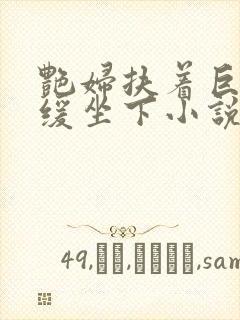 艷婦扶着巨
緩坐下小說
49,
,sam